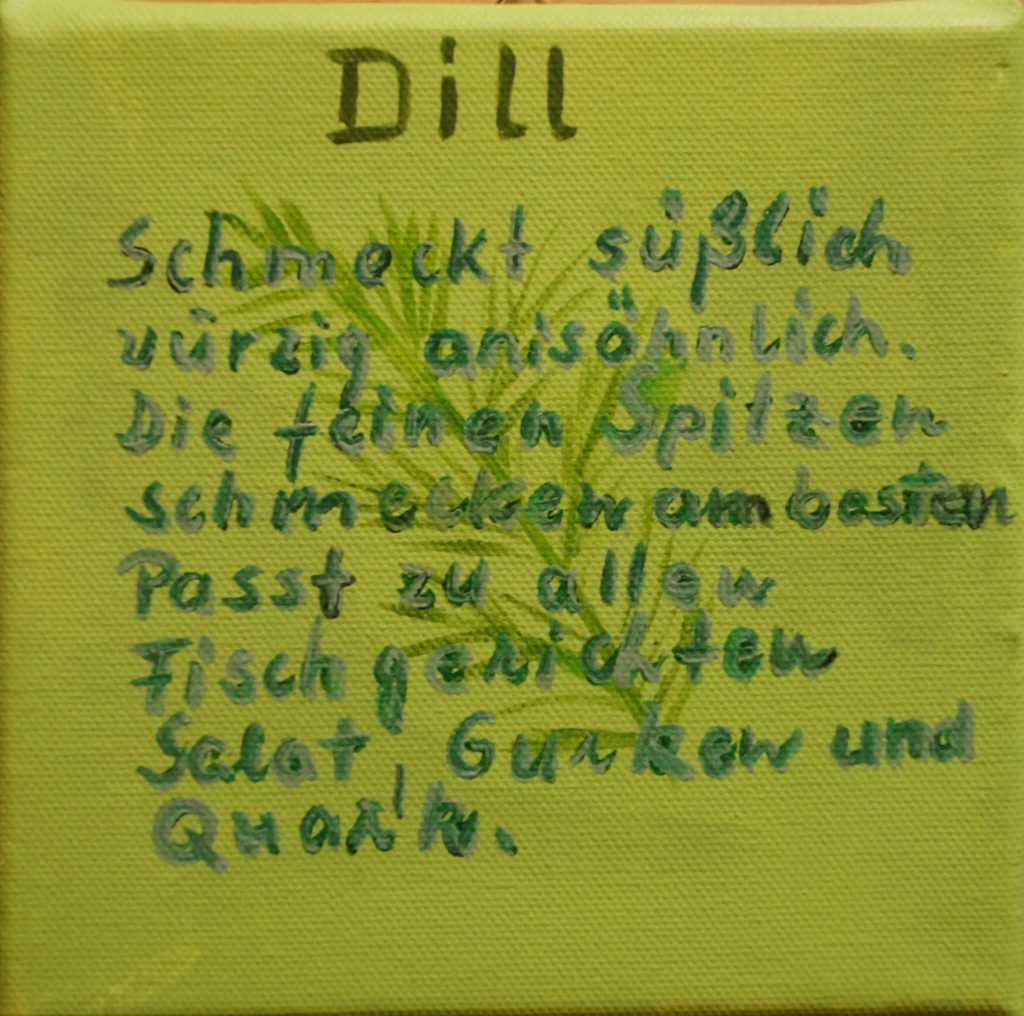 Dill
Schmeckt süßlich
würzig anisähnlich.
Die feinen Spitzen
schmecken am besten
Passt zu allen
Fischgerichten
Salat, Gurken und
Quark.